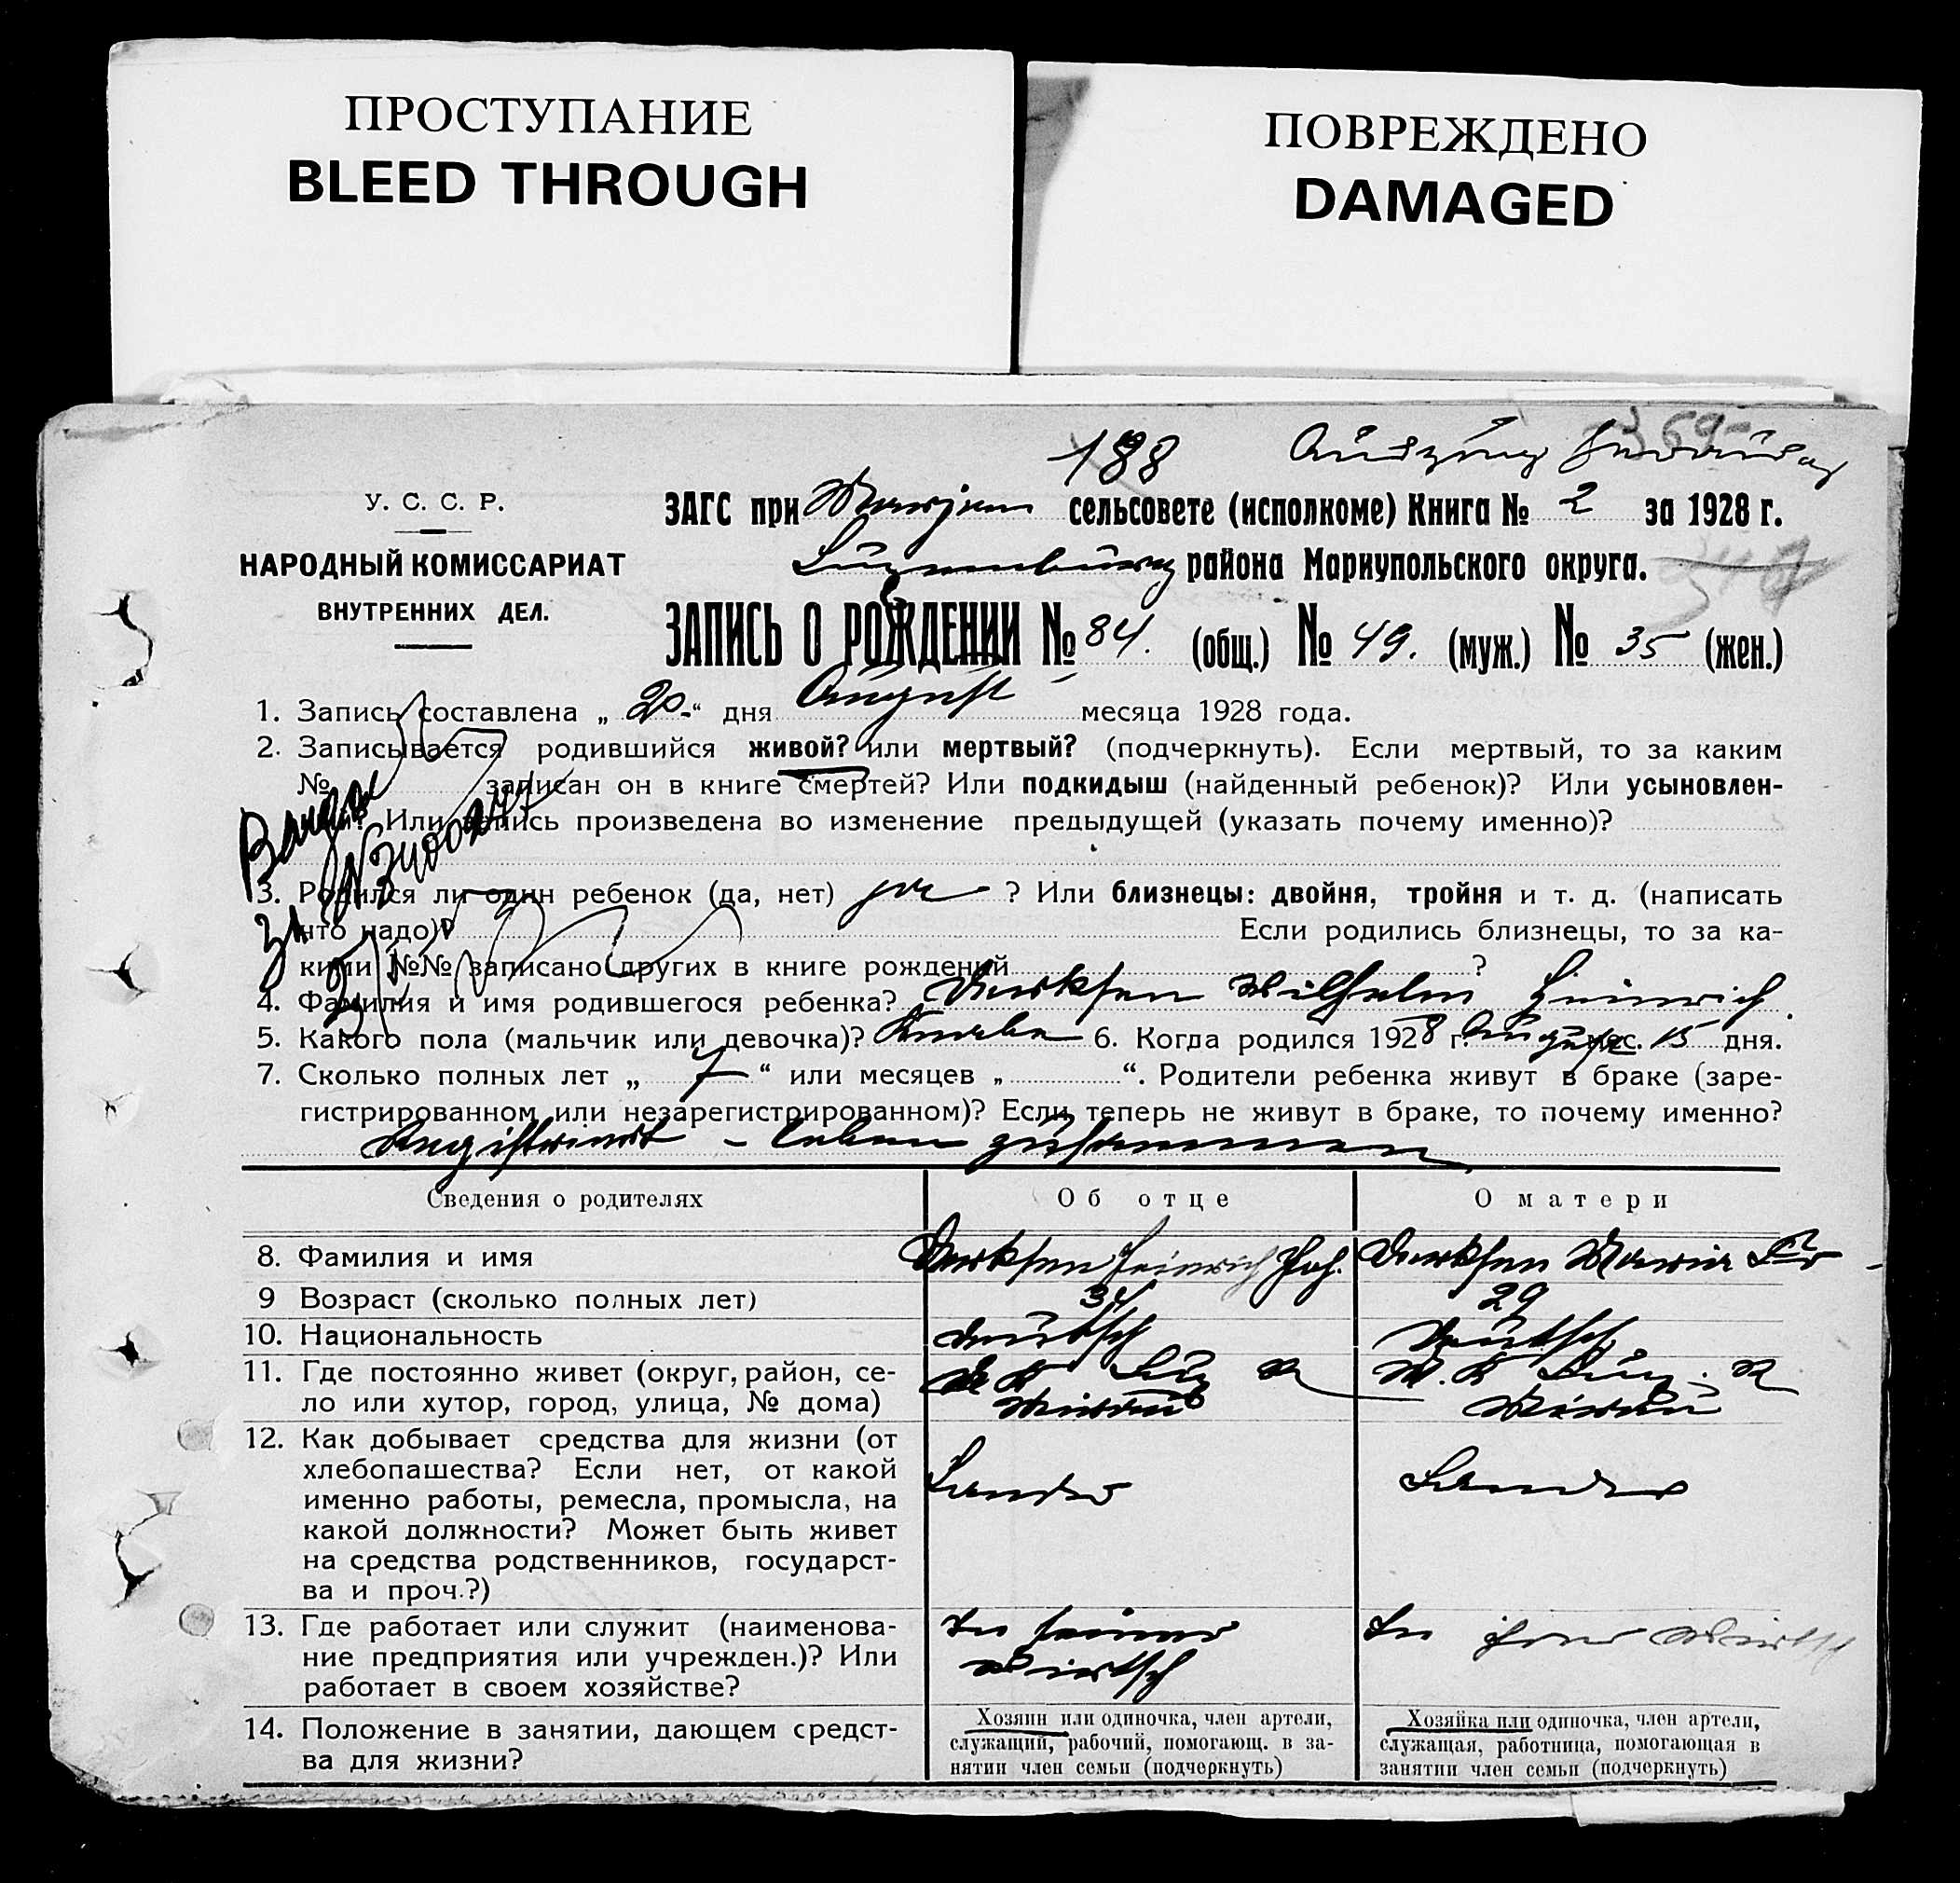 ПРОСТУПАНИЕ
BLEED THROUGH
ПОВРЕЖДЕНО
DAMAGED
188
У. С. С. Р.
НАРОДНЫЙ КОМИССАРИАТ
ВНУТРЕННИХ ДЕЛ.
ЗАГС при сельсовете (исполкоме) Книга № 2 за 1928 г.
Luxemburg района Мариупольского округа.
ЗАПИСЬ О РОЖДЕНИИ № 84. (общ.) № 49. (муж.) № 35 (жен.)
1. Запись составлена „ 20 “ дня August месяца 1928 года.
2. Записывается родившийся живой? или мертвый? (подчеркнуть). Если мертвый, то за каким
№ записан он в книге смертей? Или подкидыш (найденный ребенок)? Или усыновлен-
Или запись произведена во изменение предыдущей (указать почему именно)?
3. Родился ли один ребенок (да, нет) ja ? Или близнецы: двойня, тройня и т. д. (написать
что надо)? Если родились близнецы, то за ка-
кими №№ записано других в книге рождений ?
4. Фамилия и имя родившегося ребенка? Derksen Wilhelm Heinrich
5. Какого пола (мальчик или девочка)? Knabe 6. Когда родился 1928 г. August мес. 15 дня.
7. Сколько полных лет „ 7 “ или месяцев „ “. Родители ребенка живут в браке (заре-
гистрированном или незарегистрированном)? Если теперь не живут в браке, то почему именно?
Registriert – leben zusammen
Сведения о родителях
Об отце
О матери
8. Фамилия и имя
Derksen Heinrich Joh.
Derksen Maria
9 Возраст (сколько полных лет)
34
29
10. Национальность
deutsch
deutsch
11. Где постоянно живет (округ, район, се-
ло или хутор, город, улица, № дома)
M. K Lux. R
M. K Lux. R
12. Как добывает средства для жизни (от
хлебопашества? Если нет, от какой
именно работы, ремесла, промысла, на
какой должности? Может быть живет
на средства родственников, государст-
ва и проч.?)
13. Где работает или служит (наименова-
ние предприятия или учрежден.)? Или
работает в своем хозяйстве?
In seiner
Wirtsch
In ihrer Wirtsch
14. Положение в занятии, дающем средст-
ва для жизни?
Хозяин или одиночка, член артели,
служащий, рабочий, помогающ. в за-
нятии член семьи (подчеркнуть)
Хозяйка или одиночка, член артели,
служащая, работница, помогающая в
занятии член семьи (подчеркнуть)